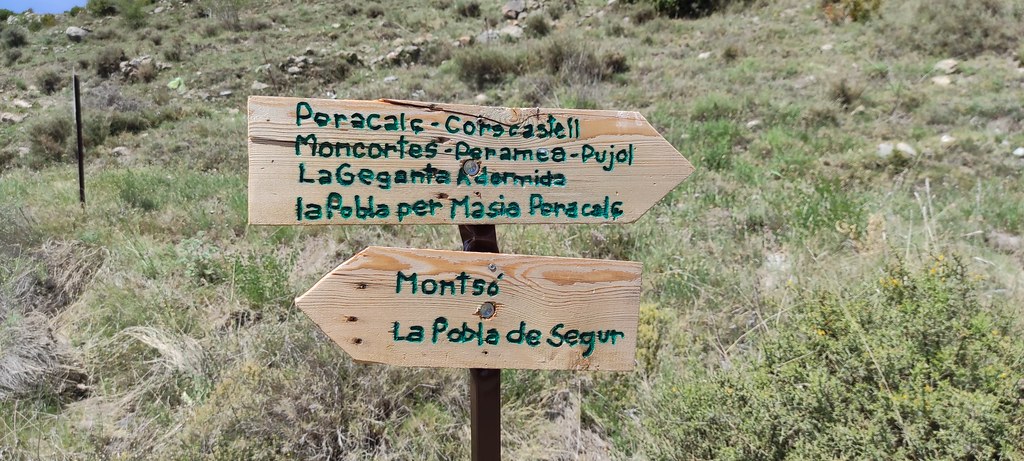 Peracalç - Corscastell
Moncortes - Peramea - Pujol
La Geganta Adormida
la Pobla per Masia Peracalç
Montsó
La Pobla de Segur